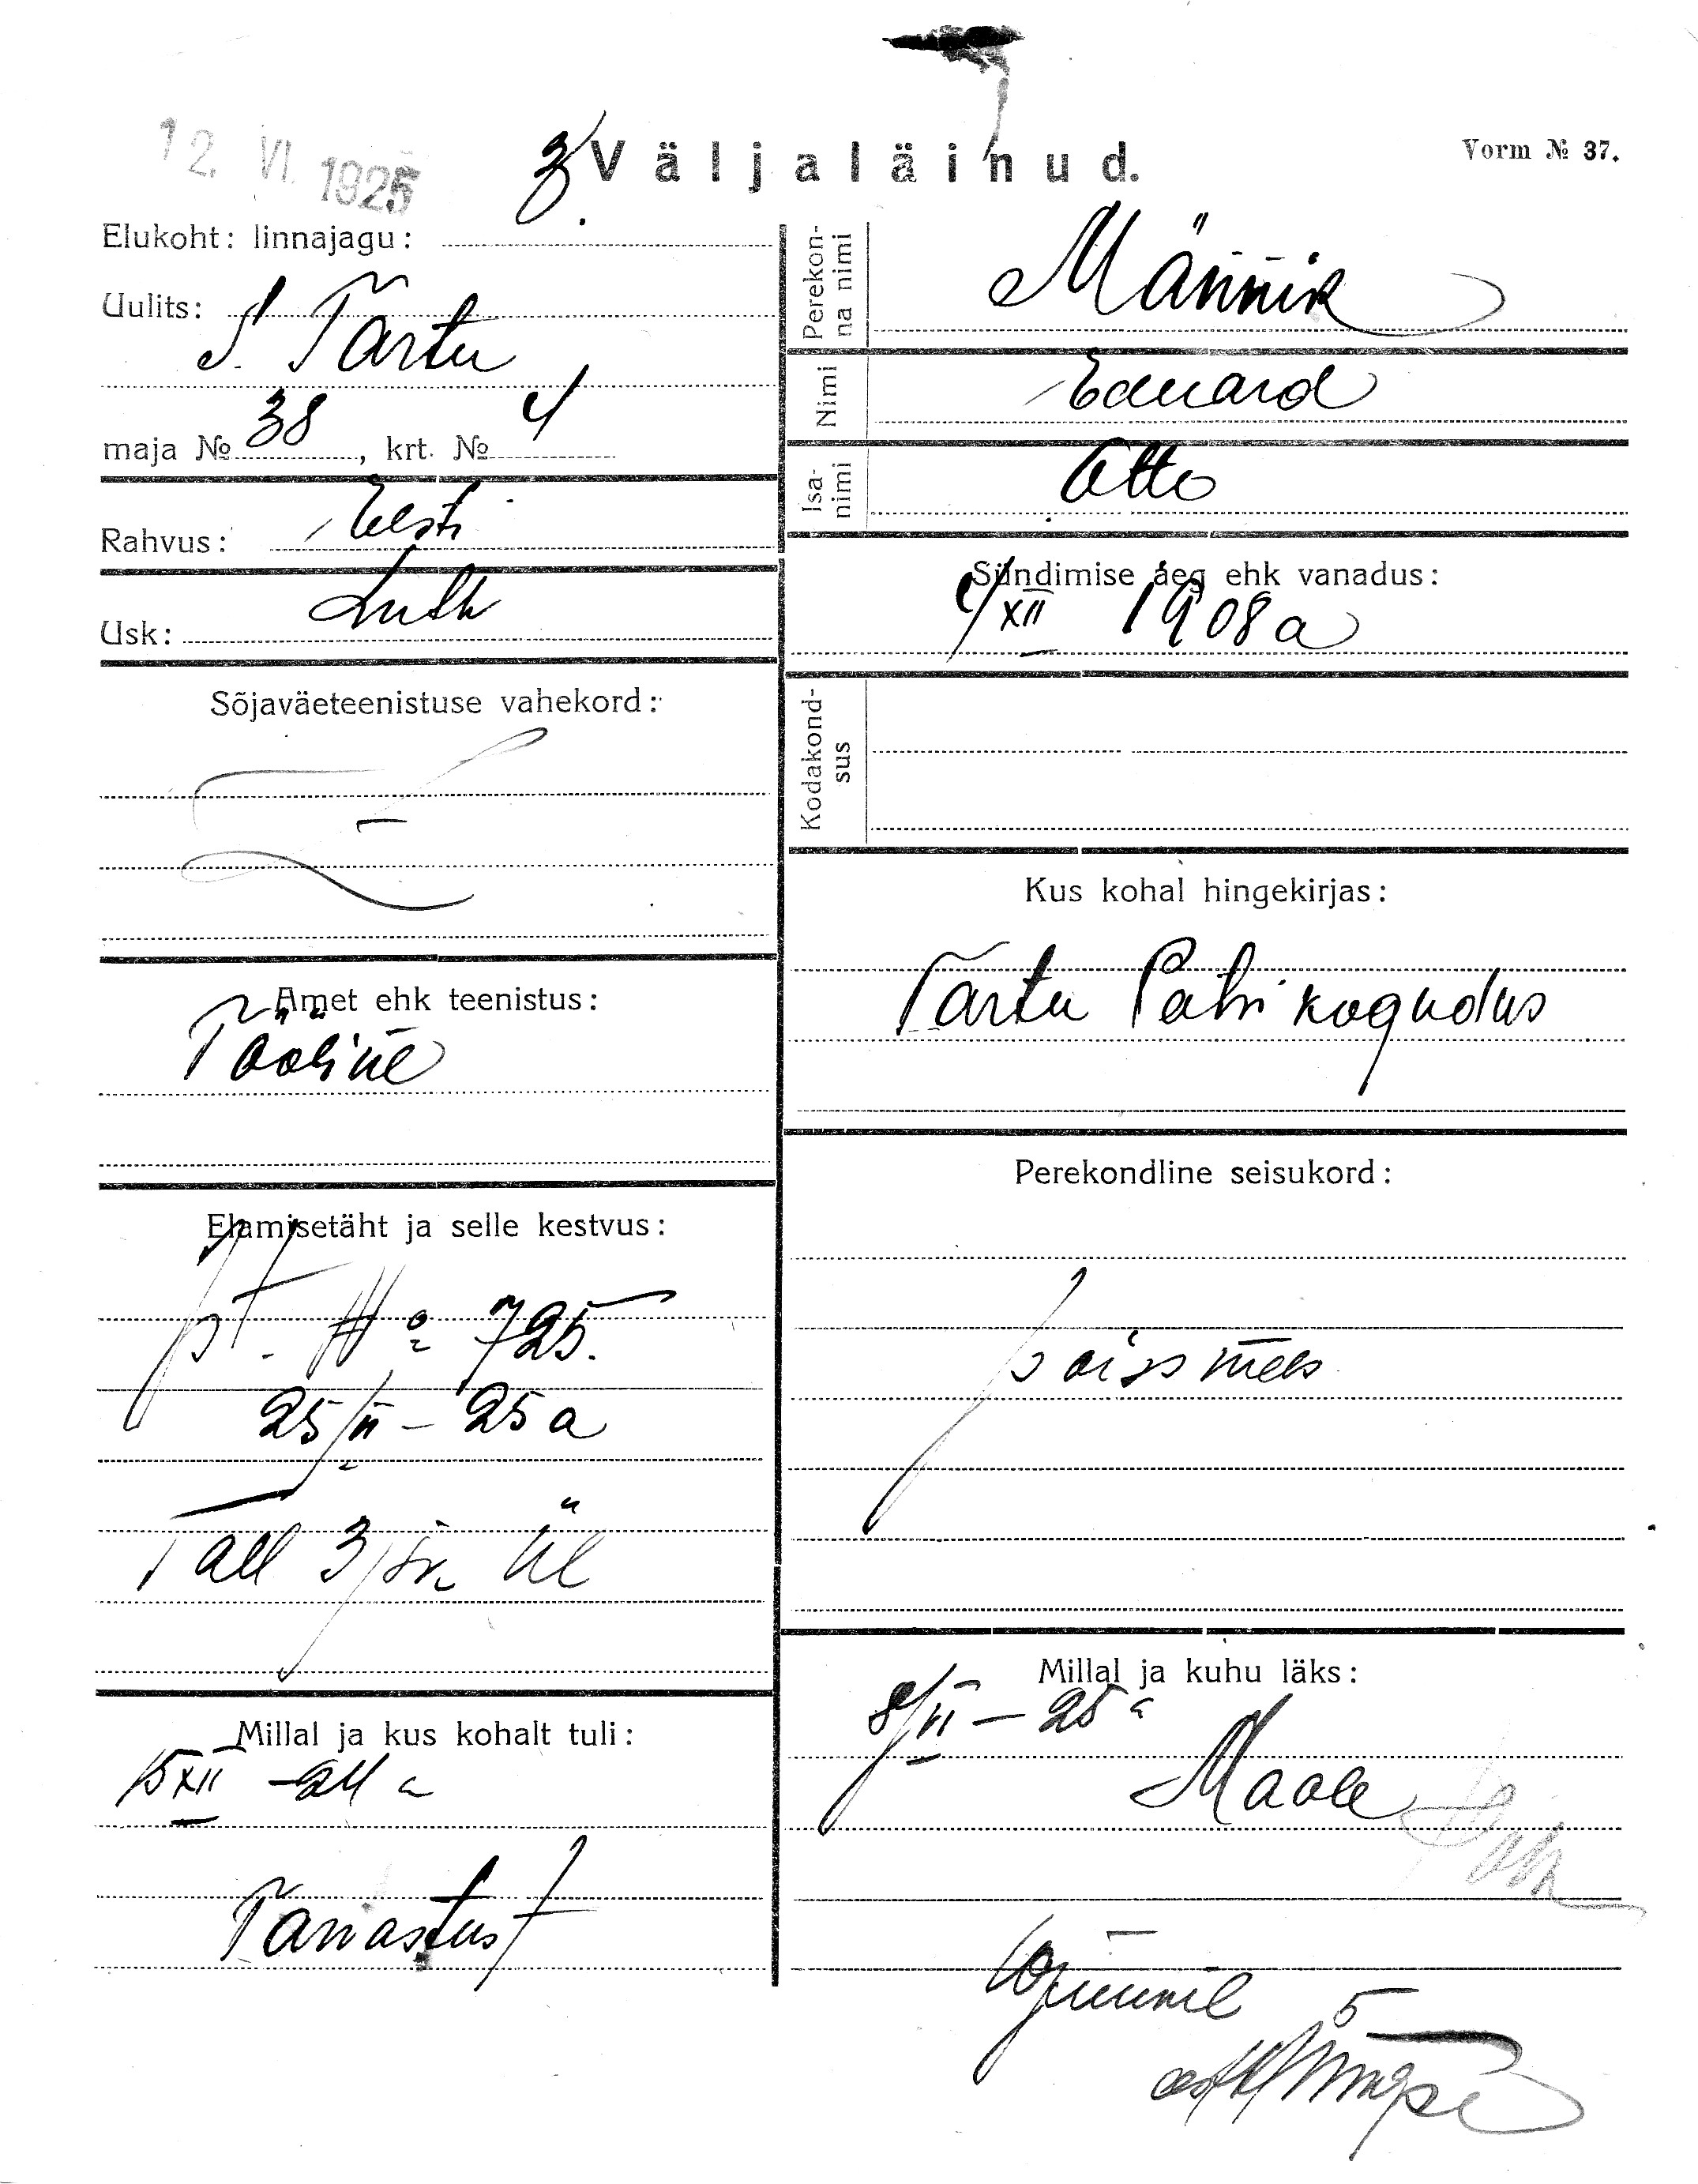 12. VI. 1925
Väljaläinud.
Vorm № 37.
Elukoht: linnajagu: 3.
Uulits: S. Tartu
maja № 38, krt. № 4
Rahvus: Eesti
Usk: Luth
Sõjaväeteenistuse vahekord:
Amet ehk teenistus:
Tööline
Elamisetäht ja selle kestvus:
pt. № 725.
25/II – 25 a
Tall 3 jsk ül
Millal ja kus kohalt tuli:
15 XII – 24 a
Tarvastust
Perekonna nimi
Männik
Nimi
Eduard
Isanimi
Otto
Sündimise aeg ehk vanadus:
4/XII 1908 a
Kodakondsus
Kus kohal hingekirjas:
Tartu Petri kogudus
Perekondline seisukord:
poissmees
Millal ja kuhu läks:
8/VI – 25 a
Maale
10 juunil 5